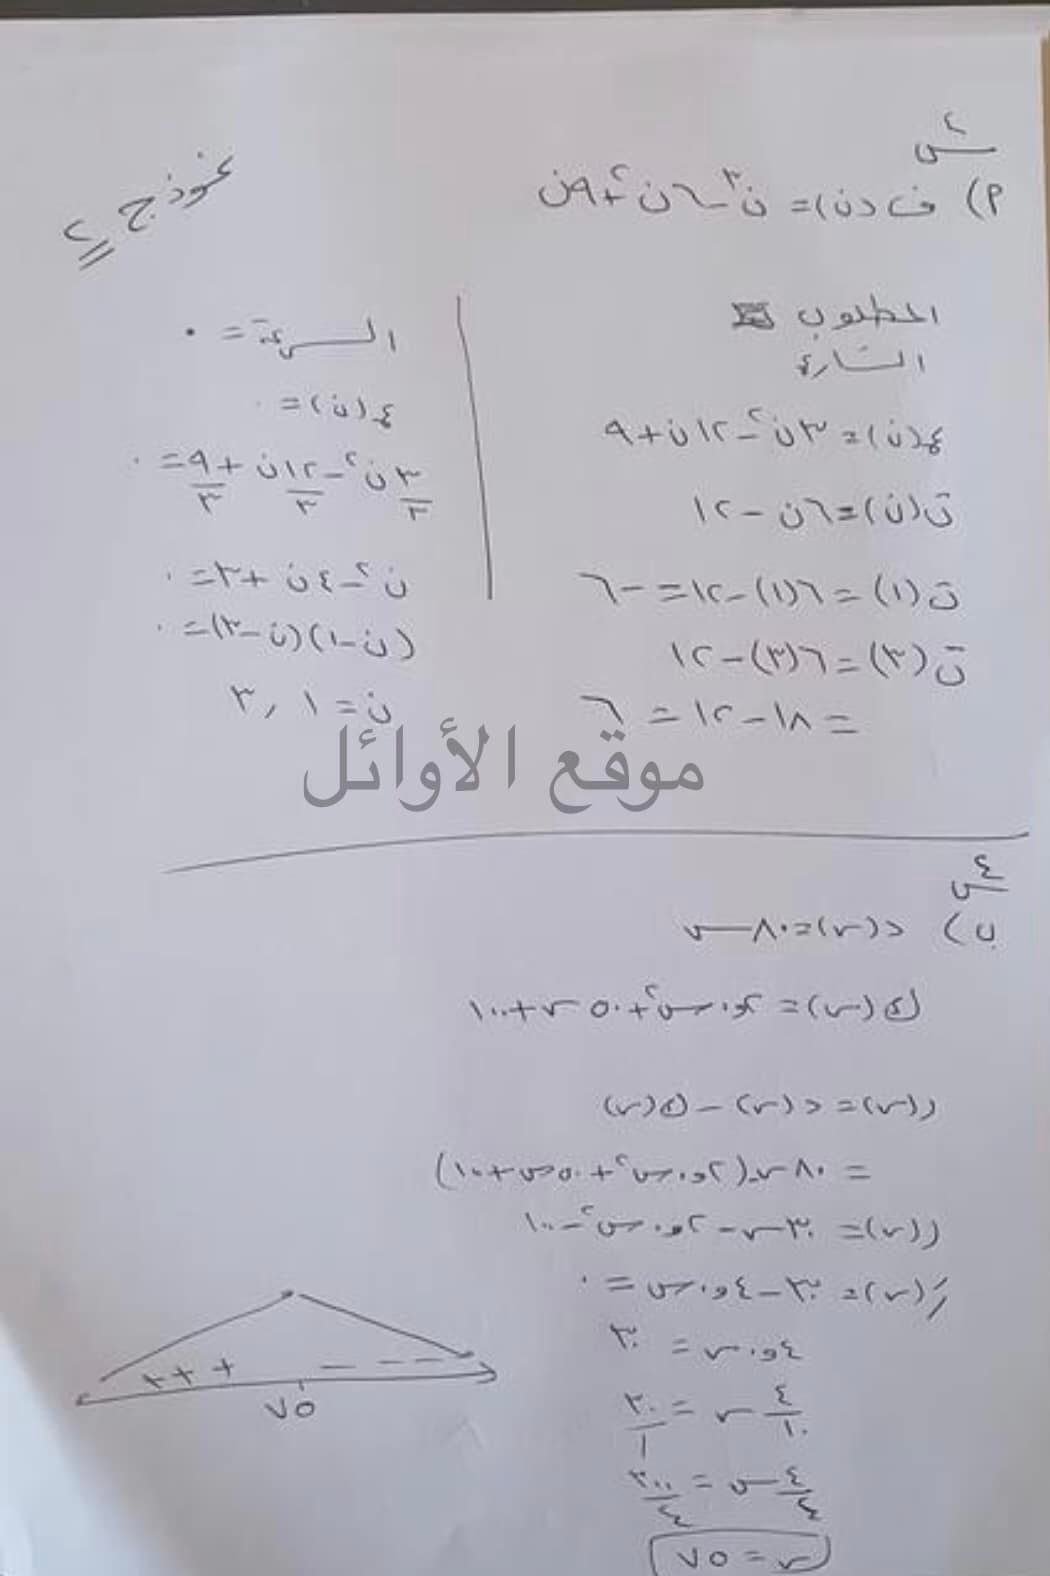 نموذج ٢
س٤
أ) ف(ن) = ن³ - ٦ن² + ٩ن
المطلوب
التسارع
ع(ن) = ٣ن² - ١٢ن + ٩
ت(ن) = ٦ن - ١٢
ت(١) = ٦(١) - ١٢ = -٦
ت(٣) = ٦(٣) - ١٢
= ١٨ - ١٢ = ٦
السرعة = ٠
ع(ن) = ٠
٣/٣ ن² - ١٢/٣ ن + ٩/٣ = ٠
ن² - ٤ن + ٣ = ٠
(ن - ١)(ن - ٣) = ٠
ن = ١ , ٣
موقع الأوائل
س٤
ب) د(س) = ٨٠س
ك(س) = ٢و٠س² + ٥٠س + ١٠٠
ر(س) = د(س) - ك(س)
= ٨٠س - (٢و٠س² + ٥٠س + ١٠٠)
ر(س) = ٣٠س - ٢و٠س² - ١٠٠
رَ(س) = ٣٠ - ٤و٠س = ٠
٤و٠س = ٣٠
٤/١٠ س = ٣٠/١
٤/٤ س = ٣٠٠/٤
س = ٧٥
+ + + - - -
٧٥